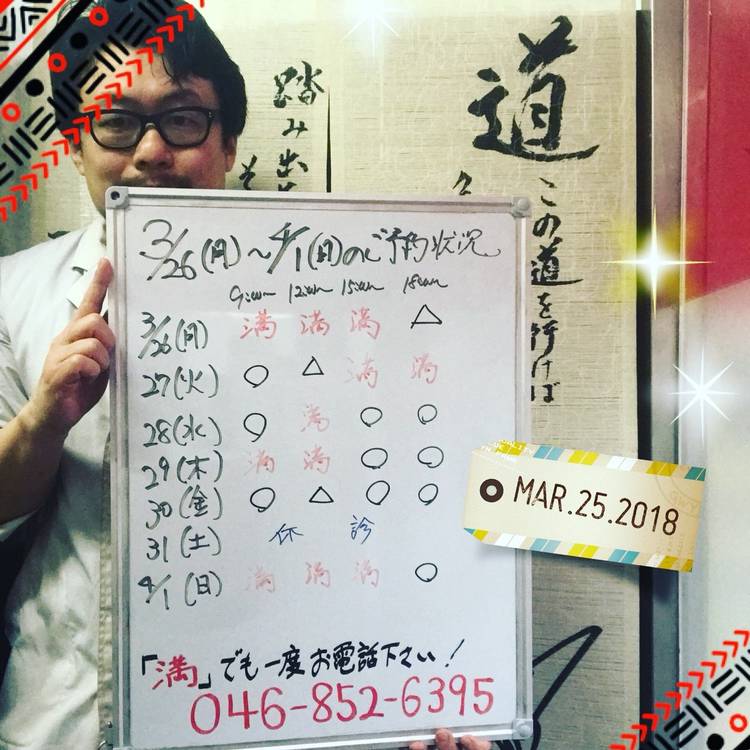 道
踏み出
そ
この道を行けば
3/26(月)〜4/1(日)のご予約状況
9:00〜 12:00〜 15:00〜 18:00〜
3/26(月) 満 満 満 △
27(火) ○ △ 満 満
28(水) ○ 満 ○ ○
29(木) 満 満 ○ ○
30(金) ○ △ ○ ○
31(土) 休診
4/1(日) 満 満 満 ○
「満」でも一度お電話下さい!
046-852-6395
MAR.25.2018